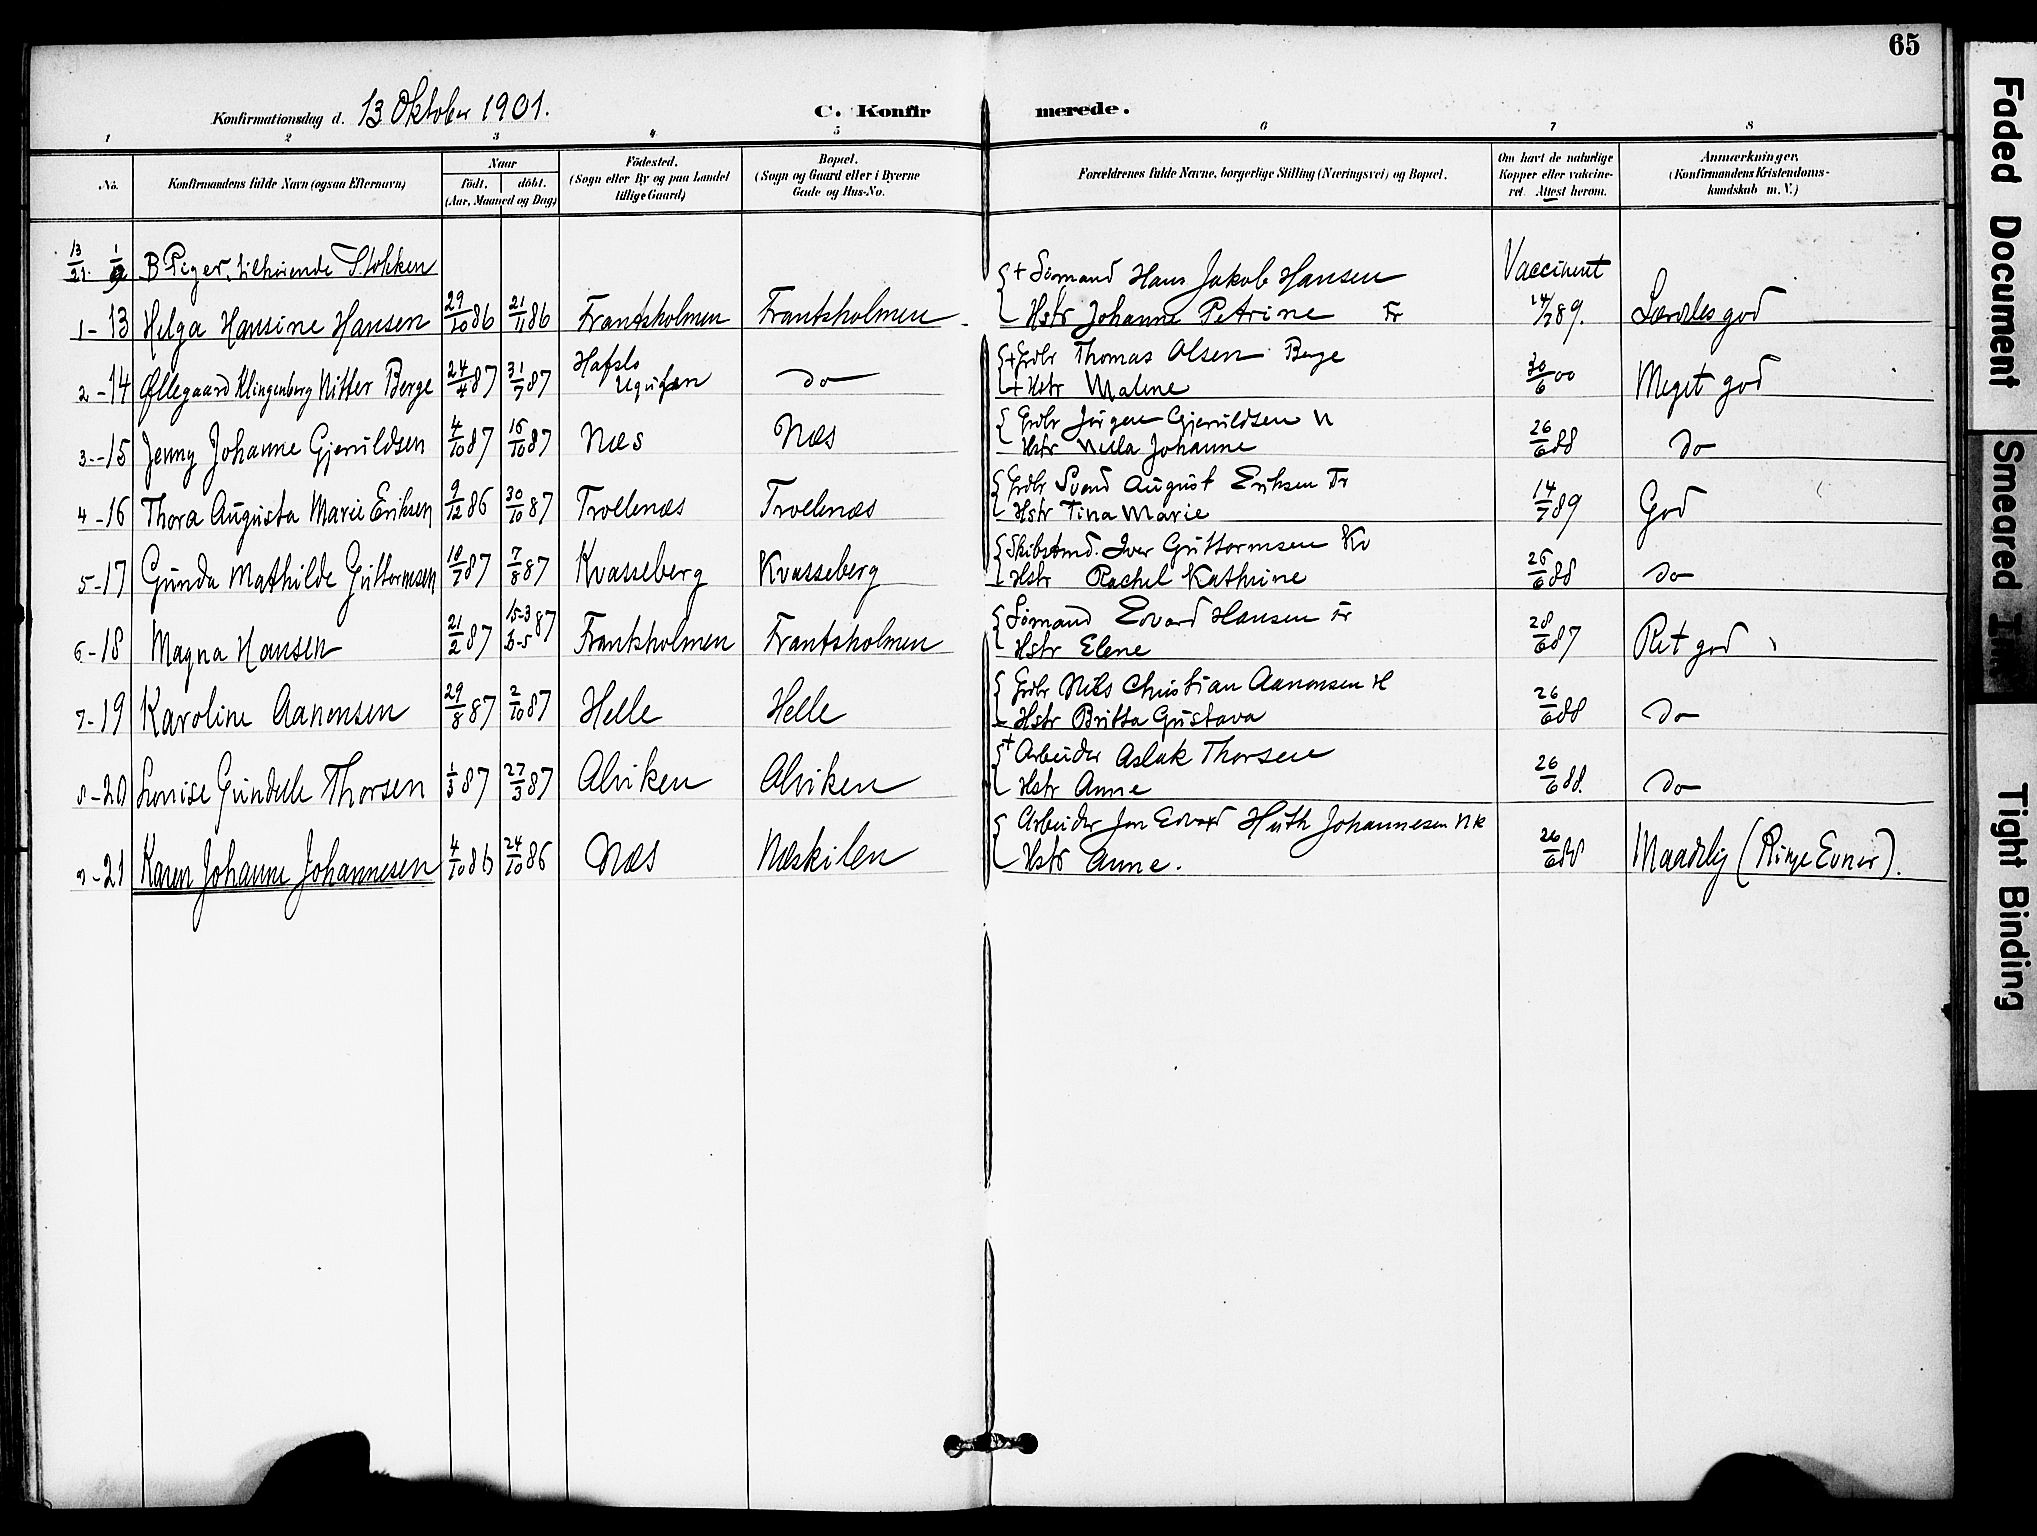 65
Konfirmationsdag d. 13 Oktober 1901.
C. Konfirmerede.
1 2 3 4 5 6 7 8
No. Konfirmandens fulde Navn (ogsaa Efternavn) Naar født. døbt. (Aar, Maaned og Dag) Fødested. (Sogn eller By og paa Landet tillige Gaard) Bopæl. (Sogn og Gaard eller i Byerne Gade og Hus-No. Forældrenes fulde Navne, borgerlige Stilling (Næringsvei) og Bopæl. Om havt de naturlige Kopper eller vaccineret. Attest herom. Anmærkninger. (Konfirmandens Kristendomskundskab m. V.)
13/21. 1/9 B Piger, tilhørende Stokken Vaccineret
+ Sømand Hans Jakob Hansen
1-13 Helga Hansine Hansen 29/10 86 21/11 86 Frantsholmen Frantsholmen Hstr Johanne Petrine Fr 14/7 89. Særdeles god
+ Grdbr Thomas Olsen Berge
2-14 Øllegaard Klingenberg Nitter Berge 24/4 87 31/7 87 Hafslo do + Hstr Malene 30/6 00 Meget god
Grdbr Jørgen Gjeruldsen N
3-15 Jenny Johanne Gjeruldsen 4/10 87 16/10 87 Næs Næs Hstr Johanne 26/6 88 do
Grdbr Svend August Eriksen Tr
4-16 Thora Augusta Marie Eriksen 9/12 86 30/10 87 Trollenæs Trollenæs Hstr Tina Marie 14/7 89 God
Skibstmd. Iver Guttormsen Kv
5-17 Gunda Mathilde Guttormsen 10/7 87 7/8 87 Kvasseberg Kvasseberg Hstr Rachel Kathrine 26/6 88 do
Sømand Edvard Hansen Fr
6-18 Magna Hansen 21/2 87 15-3 87 Frantsholmen Frantsholmen Hstr Elene 28/6 87 Ret god
Grdbr Nils Christian Aanonsen H
7-19 Karoline Aanonsen 29/8 87 2/10 87 Helle Helle Hstr Britta Gustava 26/6 88 do
+ Arbeider Aslak Thorsen
8-20 Lovise Gundelle Thorsen 1/3 87 27/3 87 Alviken Alviken Hstr Anne 26/6 88. do
Arbeider Jon Edvard Huth Johannesen Nk
9-21 Karen Johanne Johannesen 4/10 86 24/10 86 Næs Næskilen Hstr Anne. 26/6 88 Maadelig (Ringe Evner).
Faded Document
Smeared Ink
Tight Binding